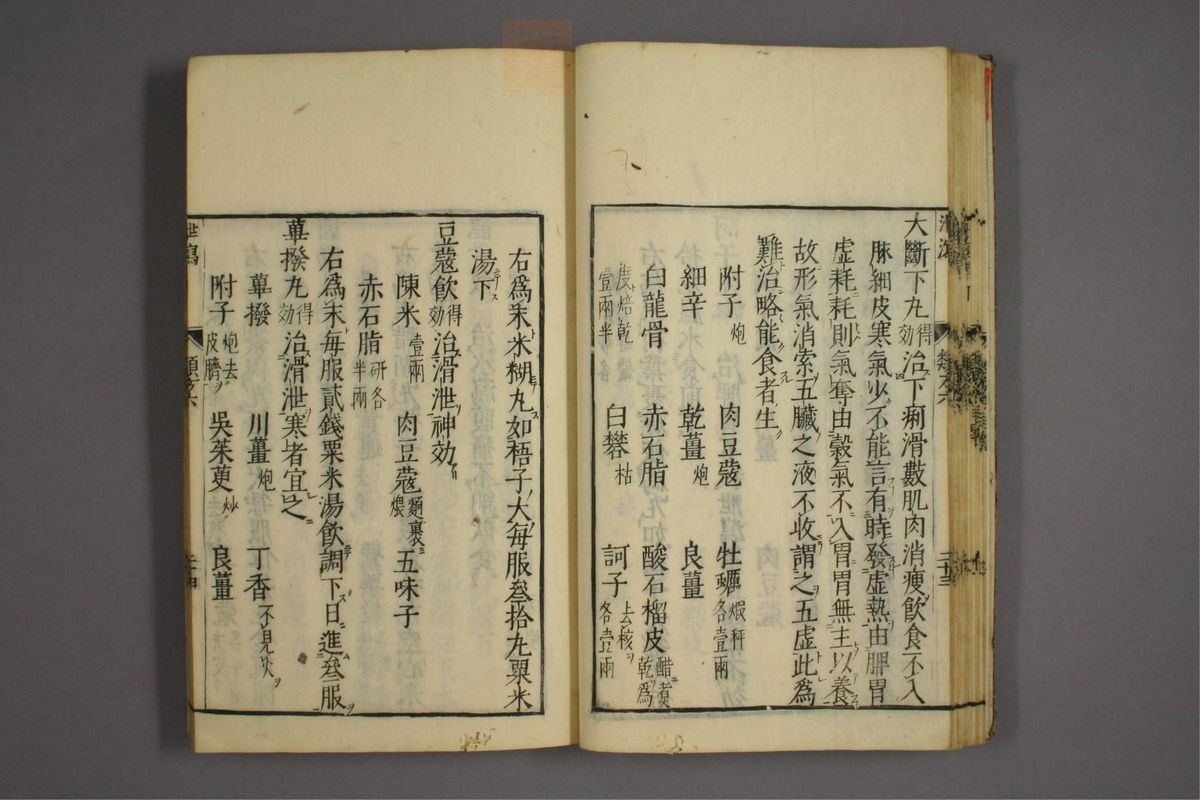 大斷下丸得効治下痢滑數肌肉消瘦飲食不入
脉細皮寒氣少不能言有時發虛熱由脾胃
虛耗耗則氣奪由穀氣不入胃胃無主以養
故形氣消索五臟之液不收謂之五虛此為
難治略能食者生
附子炮 肉豆蔻 牡蠣煆秤各壹兩
細辛 乾薑炮 良薑
白龍骨 赤石脂 酸石榴皮醋煮乾為
度焙乾壹兩半 白礬枯 訶子去核各壹兩
右為末米糊丸如梧子大每服叄拾丸粟米
湯下
豆蔻飲得効治滑泄神効
陳米壹兩 肉豆蔻麵裹煨 五味子
赤石脂研各半兩
右為末每服貳錢粟米湯飲調下日進叄服
蓽撥丸得効治滑泄寒者宜之
蓽撥 川薑炮 丁香不見火
附子炮去皮臍 吳茱萸炒 良薑